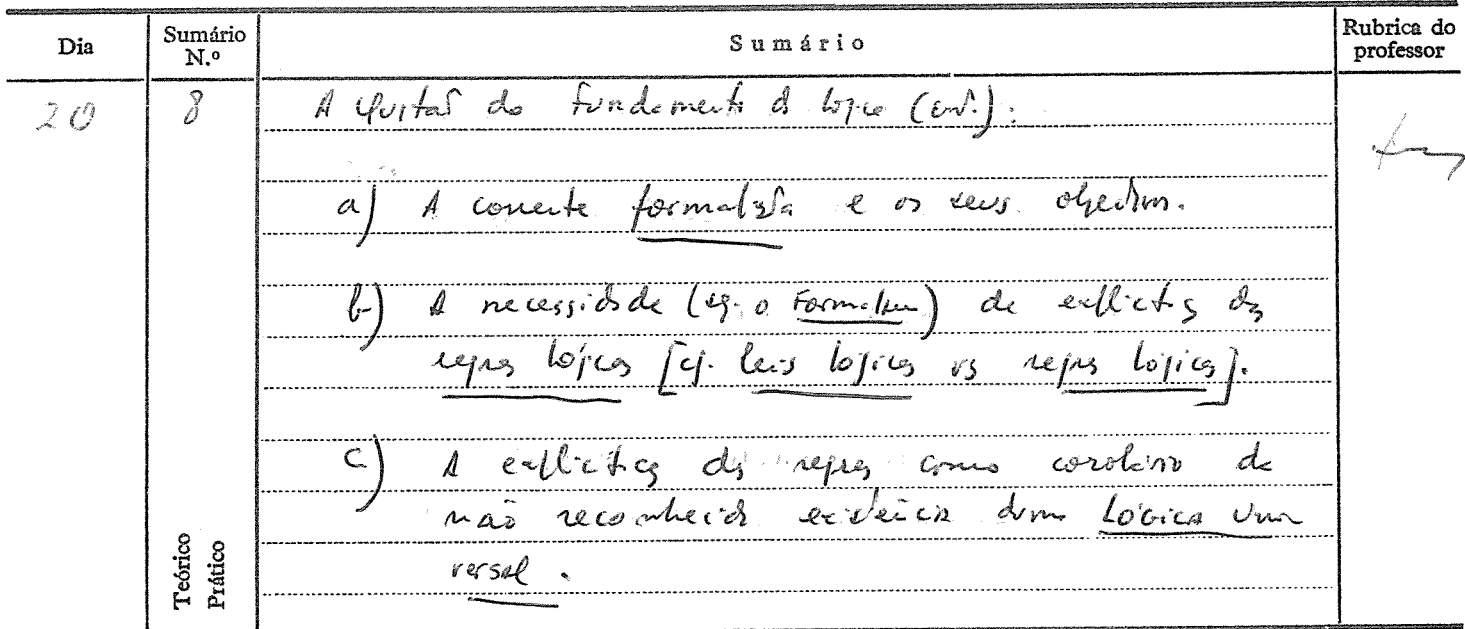 Dia
Sumário N.º
Sumário
Rubrica do professor
20
8
A questão do fundamento da lógica (cont.):
a) A corrente formalista e os seus objectivos.
b) A necessidade (sg. o Formalismo) de explicitação das
regras lógicas [cf. leis lógicas vs regras lógicas].
c) A explicitação das regras como corolário da
não reconhecida existência duma Lógica Uni
versal.
Teórico
Prático